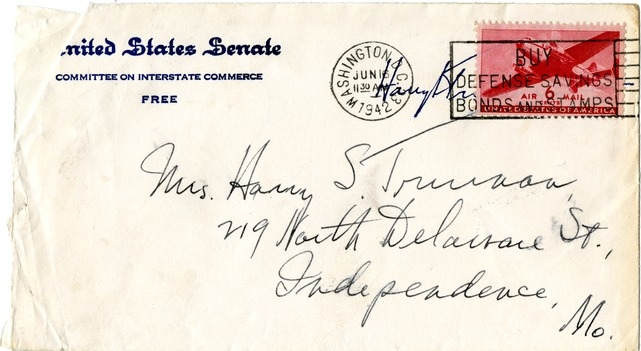 United States Senate
COMMITTEE ON INTERSTATE COMMERCE
FREE
WASHINGTON, D.C. 3
JUN 16
11 30 AM
1942
Harry
BUY
DEFENSE SAVINGS
BONDS AND STAMPS
AIR 6¢ MAIL
UNITED STATES OF AMERICA
Mrs. Harry S. Truman,
219 North Delaware St.,
Independence,
Mo.